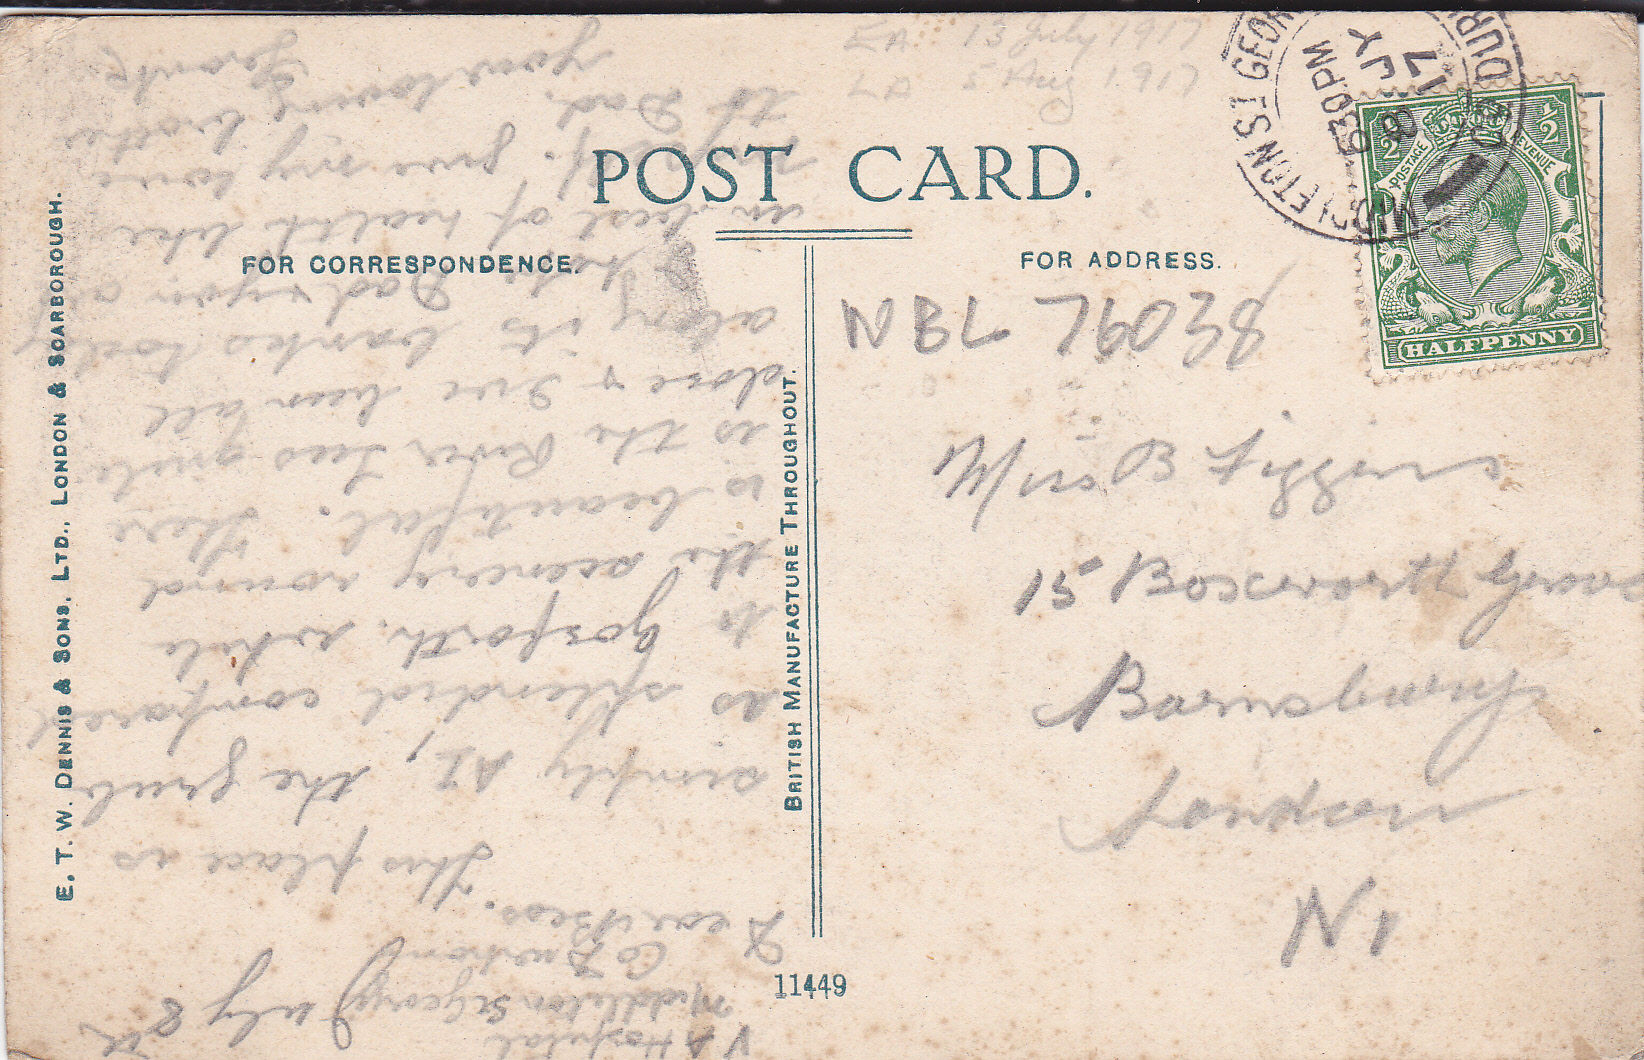 EA 13 July 1917
LA 5 Aug 1917
POST CARD.
FOR CORRESPONDENCE.
FOR ADDRESS.
MIDDLETON ST GEORGE
630PM
8 JY
17
DUR
POSTAGE REVENUE
½ ½
HALFPENNY
NBL
Miss B Figgins
15 Boxworth Grove
Barnsbury
London
N1
V A Hospital
Middleton St George
Co Durham
July 8th
Dear Bess.
This place is
simply A1, the grub
is splendid compared
to Gosforth, while
the scenery round
is beautiful. There
is the River Tees quite
close & I've been all
along its banks today
Dad & you are
in best of health like
myself. Give my love
to Dad.
Your loving brother
E. T. W. DENNIS & SONS, LTD., LONDON & SCARBOROUGH.
BRITISH MANUFACTURE THROUGHOUT.
11449